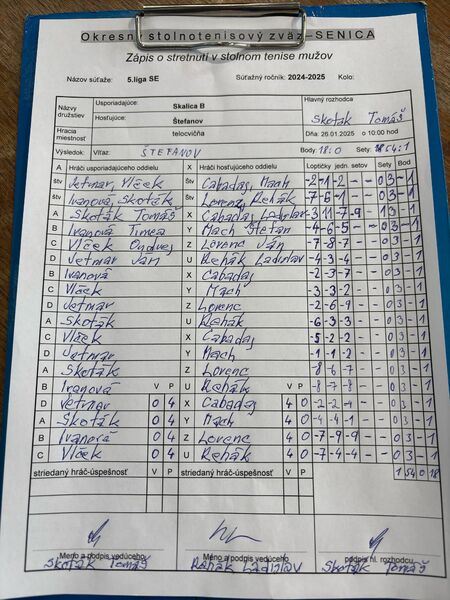 Okresný stolnotenisový zväz–SENICA
Zápis o stretnutí v stolnom tenise mužov
Názov súťaže: 5.liga SE Súťažný ročník: 2024-2025 Kolo:
Názvy družstiev Usporiadajúce: Skalica B Hlavný rozhodca
Hosťujúce: Štefanov Skoták Tomáš
Hracia miestnosť telocvičňa Dňa 26.01.2025 o 10:00 hod
Výsledok: Víťaz: ŠTEFANOV Body: 18:0 Sety: 54:1
A Hráči usporiadajúceho oddielu X Hráči hosťujúceho oddielu Loptičky jedn. setov Sety Bod
štv Jetmar, Vlček štv Cabadaj, Mach -2 -1 -2 - - 0 3 - 1
štv Ivanová, Skoták štv Lorenz, Rehák -7 -6 -1 - - 0 3 - 1
A Skoták Tomáš X Cabadaj Ladislav -3 11 -7 -9 - 1 3 - 1
B Ivanová Timea Y Mach Štefan -4 -6 -5 - - 0 3 - 1
C Vlček Ondrej Z Lorenc Ján -7 -8 -7 - - 0 3 - 1
D Jetmar Ján U Rehák Ladislav -4 -3 -4 - - 0 3 - 1
B Ivanová X Cabadaj -2 -3 -7 - - 0 3 - 1
C Vlček Y Mach -3 - - 0 3 - 1
D Jetmar Z Lorenc -2 -6 -9 - - 0 3 - 1
A Skoták U Rehák -6 -3 -3 - - 0 3 - 1
C Vlček X Cabadaj -5 -2 -2 - - 0 3 - 1
D Jetmar Y Mach -1 -1 -2 - - 0 3 - 1
A Skoták Z Lorenc -8 -6 -7 - - 0 3 - 1
B Ivanová V P U Rehák V P -8 -7 -8 - - 0 3 - 1
D Jetmar 0 4 X Cabadaj 4 0 -2 -2 -4 - - 0 3 - 1
A Skoták 0 4 Y Mach 4 0 -4 -4 -1 - - 0 3 - 1
B Ivanová 0 4 Z Lorenc 4 0 -7 -9 -9 - - 0 3 - 1
C Vlček 0 4 U Rehák 4 0 -7 -4 -4 - - 0 3 - 1
striedaný hráč-úspešnosť V P striedaný hráč-úspešnosť V P 1 54 0 18
Meno a podpis vedúceho Méno a podpis vedúceho podpis hl. rozhodcu
Skoták Tomáš Rehák Ladislav Skoták Tomáš